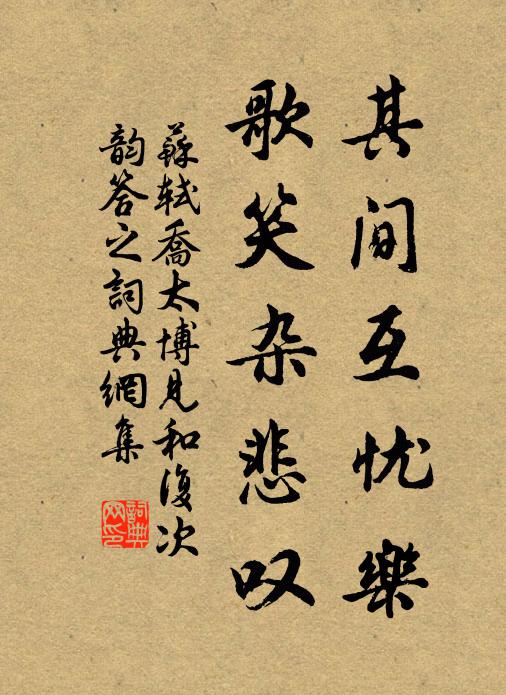 其间互忧樂
歌笑杂悲叹
蘇軾喬太博見和復次
韵答之詞典網集
詞典
网印